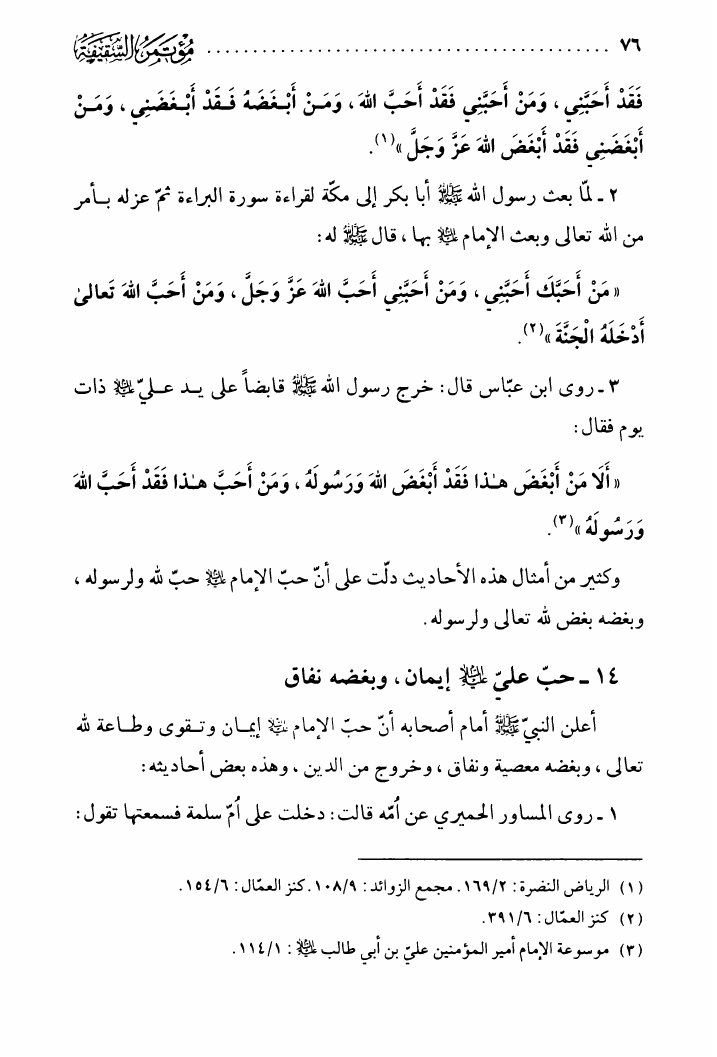 ٧٦ ........................................ مُؤتَمَرُ السَّقِيفَةِ
فَقَدْ أَحَبَّنِي ، وَمَنْ أَحَبَّنِي فَقَدْ أَحَبَّ اللهَ ، وَمَـنْ أَبْـغَضَهُ فَـقَدْ أَبْـغَضَنِي ، وَمَـنْ
أَبْغَضَنِي فَقَدْ أَبْغَضَ اللهَ عَزَّ وَجَلَّ »(١).
٢ ـ لمّا بعث رسول الله ﷺ أبا بكر إلى مكّة لقراءة سورة البراءة ثمّ عزله بـأمر
من الله تعالى وبعث الإمام عليه السلام بها ، قال ﷺ له:
« مَنْ أَحَبَّكَ أَحَبَّنِي ، وَمَنْ أَحَبَّنِي أَحَبَّ اللهَ عَزَّ وَجَلَّ ، وَمَنْ أَحَبَّ اللهَ تَعالىٰ
أَدْخَلَهُ الْجَنَّةَ »(٢).
٣ ـ روى ابن عبّاس قال: خرج رسول الله ﷺ قابضاً على يـد عـليّ عليه السلام ذات
يوم فقال:
« أَلَا مَنْ أَبْغَضَ هـٰذا فَقَدْ أَبْغَضَ اللهَ وَرَسُولَهُ ، وَمَنْ أَحَبَّ هـٰذا فَقَدْ أَحَبَّ اللهَ
وَرَسُولَهُ »(٣).
وكثير من أمثال هذه الأحاديث دلّت على أنّ حبّ الإمام عليه السلام حبّ لله ولرسوله ،
وبغضه بغض لله تعالى ولرسوله.
١٤ ـ حبّ عليّ عليه السلام إيمان ، وبغضه نفاق
أعلن النبيّ ﷺ أمام أصحابه أنّ حبّ الإمام عليه السلام إيمـان وتـقوى وطـاعة لله
تعالى ، وبغضه معصية ونفاق ، وخروج من الدين ، وهذه بعض أحاديثه:
١ ـ روى المساور الحميري عن أمّه قالت: دخلت على اُمّ سلمة فسمعتها تقول:
(١) الرياض النضرة: ١٦٩/٢. مجمع الزوائد: ١٠٨/٩. كنز العمّال: ١٥٤/٦.
(٢) كنز العمّال: ٣٩١/٦.
(٣) موسوعة الإمام أمير المؤمنين عليّ بن أبي طالب عليه السلام: ١١٤/١.